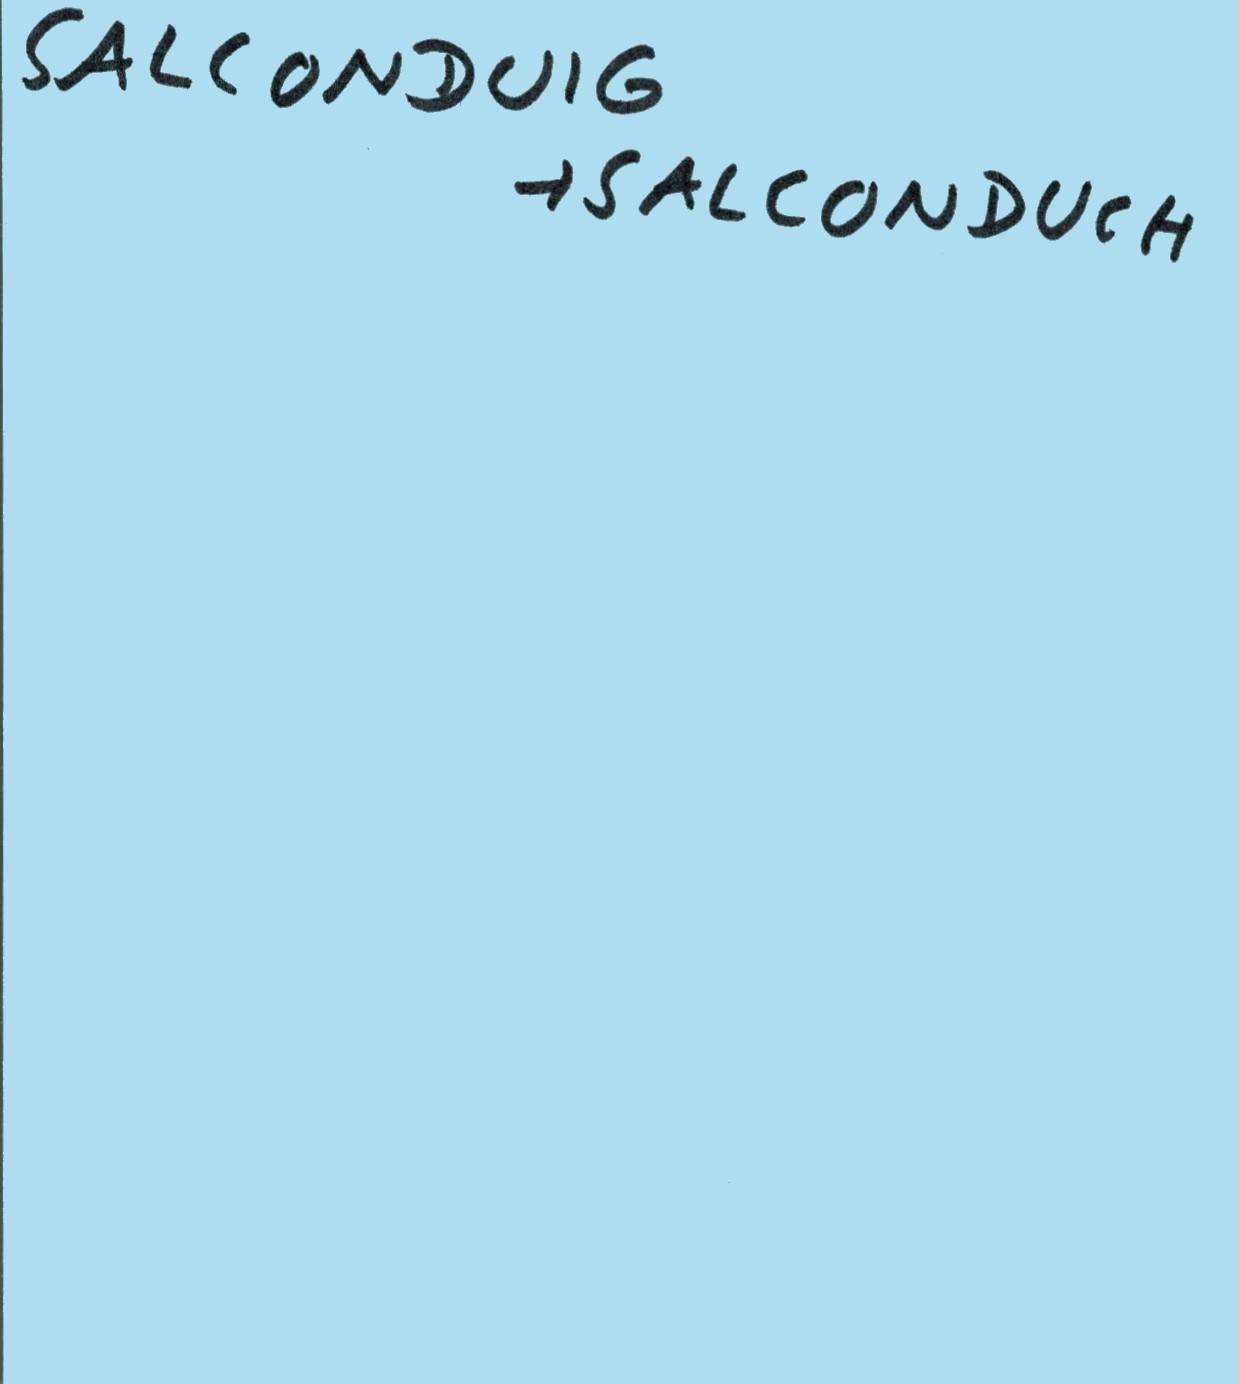 SALCONDUIG
→SALCONDUCH